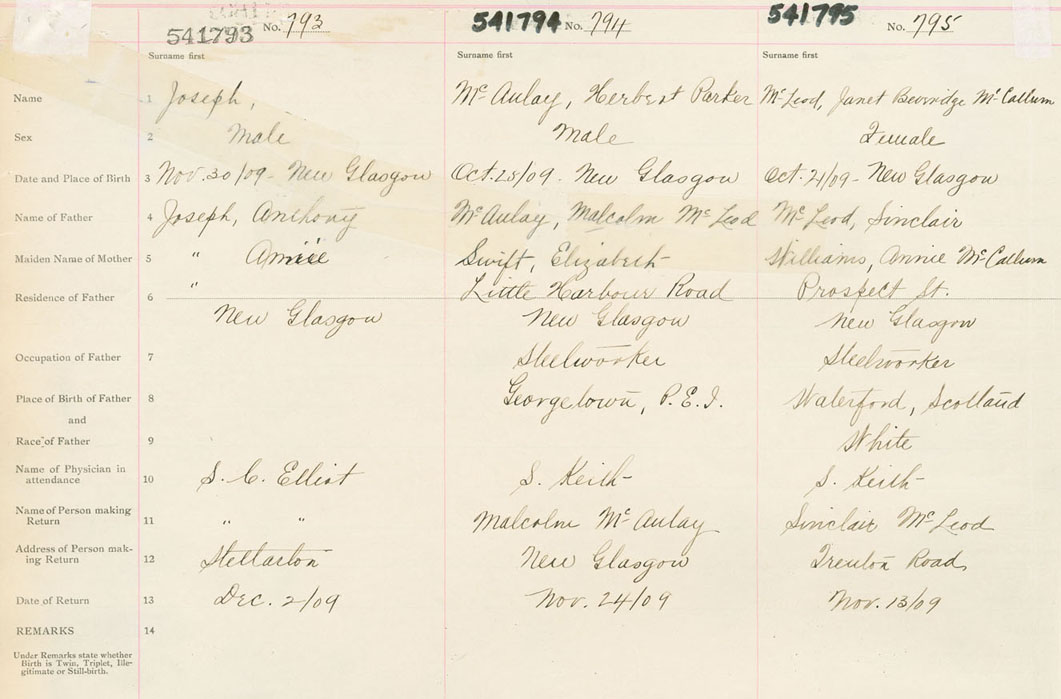 541793 No. 793 541794 No. 794 541795 No. 795
Surname first Surname first Surname first
Name 1 Joseph, McAulay, Herbert Parker McLeod, Janet Beveridge McCallum
Sex 2 Male Male Female
Date and Place of Birth 3 Nov. 30/09 - New Glasgow Oct. 25/09 - New Glasgow Oct. 21/09 - New Glasgow
Name of Father 4 Joseph, Anthony McAulay, Malcolm McLeod McLeod, Sinclair
Maiden Name of Mother 5 " Annie Swift, Elizabeth Williams, Annie McCallum
Residence of Father 6 " Little Harbour Road Prospect St.
New Glasgow New Glasgow New Glasgow
Occupation of Father 7 Steelworker Steelworker
Place of Birth of Father 8 Georgetown, P.E.I. Waterford, Scotland
and
Race of Father 9 White
Name of Physician in
attendance 10 S. C. Elliot S. Keith S. Keith
Name of Person making
Return 11 " " Malcolm McAulay Sinclair McLeod
Address of Person mak-
ing Return 12 Stellarton New Glasgow Trenton Road
Date of Return 13 Dec. 2/09 Nov. 24/09 Nov. 13/09
REMARKS 14
Under Remarks state whether
Birth is Twin, Triplet, Ille-
gitimate or Still-birth.